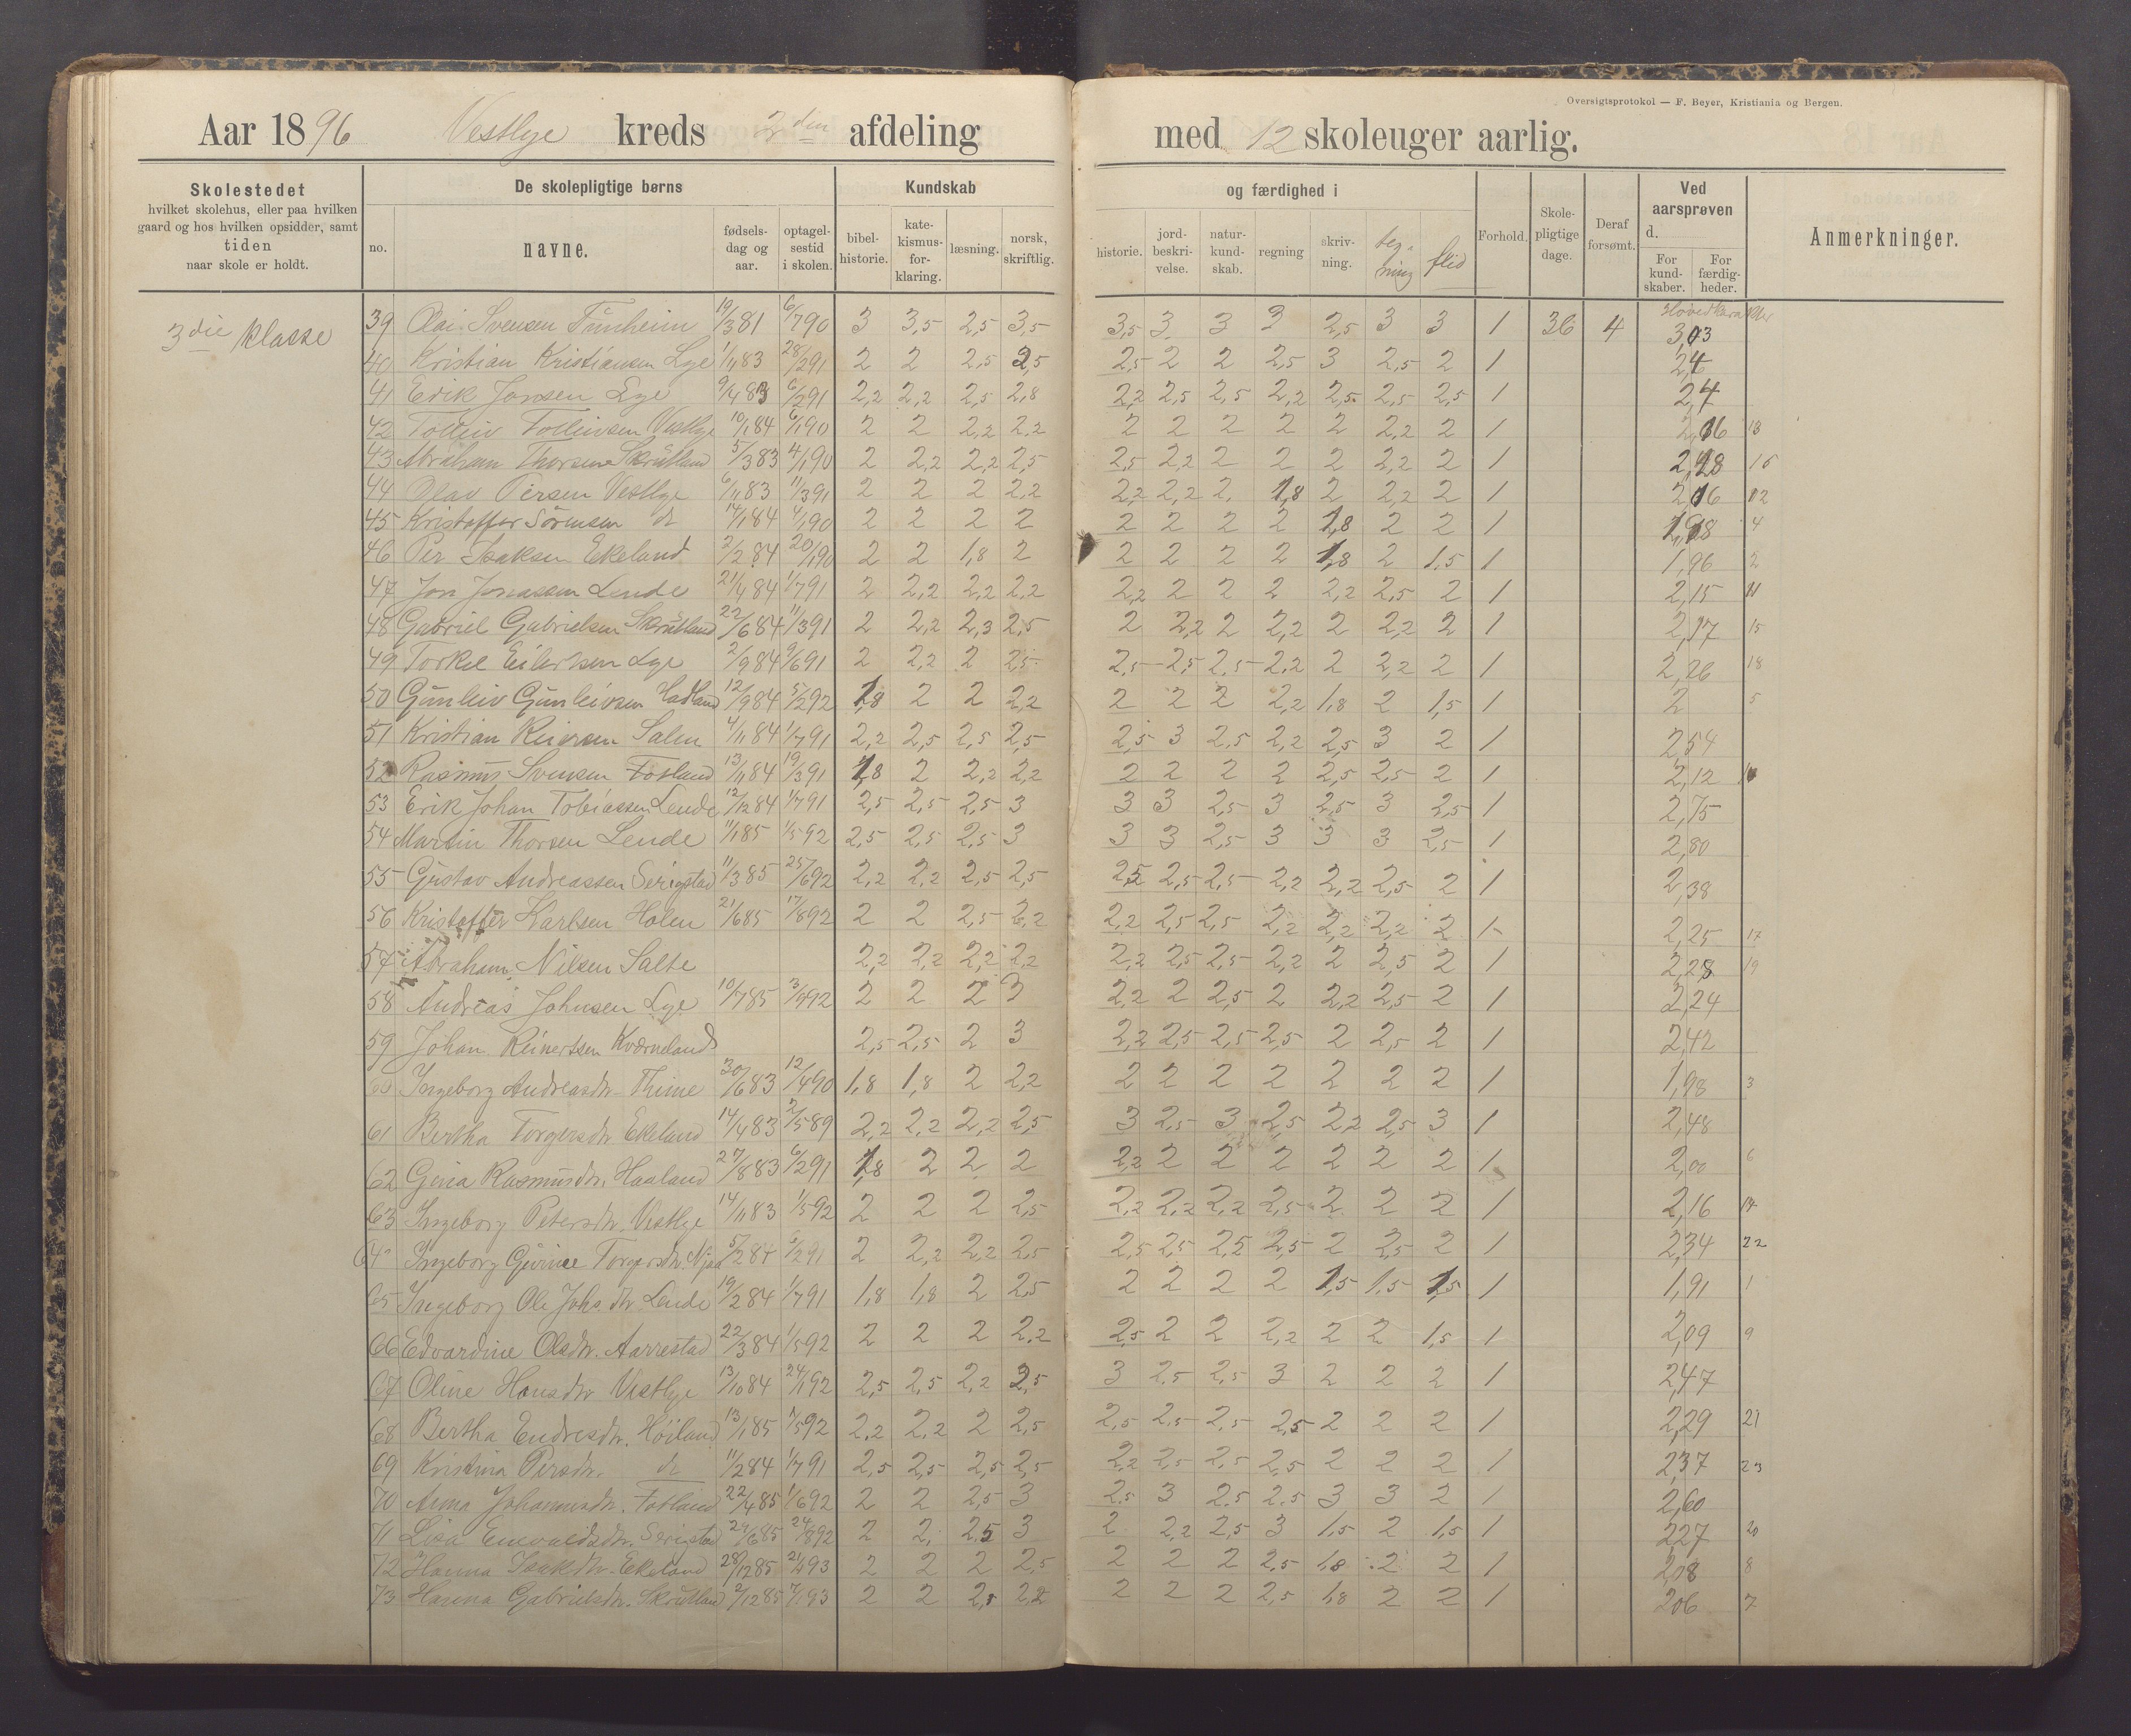 Oversigtsprotokol — F. Beyer, Kristiania og Bergen.
Aar 1896 Vestlye kreds 2den afdeling med 12 skoleuger aarlig.
Skolestedet hvilket skolehus, eller paa hvilken gaard og hos hvilken opsidder, samt tiden naar skole er holdt.
De skolepligtige børns
no. navne. fødsels-dag og aar. optagel-sestid i skolen.
Kundskab og færdighed i
bibel-historie. kate-kismus-for-klaring. læsning. norsk, skriftlig. historie. jord-beskri-velse. natur-kund-skab. regning skriv-ning. teg-ning flid
Forhold. Skole-pligtige dage. Deraf forsømt. Ved aarsprøven d. For kund-skaber. For færdig-heder. Anmerkninger.
3die klasse
Hovedkarakter
39 Olai Svensen Tunheim 19/3 81 6/7 90 3 3,5 2,5 3,5 3,5 3 3 3 2,5 3 3 1 36 4 3,03
40 Kristian Kristiansen Lye 1/11 83 28/2 91 2 2 2,5 2,5 2,5 2 2 2,5 3 2,5 2 1
41 Erik Jonsen Lye 9/4 83 6/2 91 2,2 2,2 2,5 2,8 2,2 2,5 2,5 2,2 2,5 2,5 2,5 1 2,4
42 Tolleiv Tolleivsen Vestlye 10/1 84 6/1 90 2 2 2,2 2,2 2 2 2 2 2 2,2 2 1 2,16 13
43 Abraham Thorsen Skrutland 5/3 83 4/1 90 2 2,2 2,2 2,5 2,5 2,2 2 2 2 2,2 2 1 2,18 16
44 Olav Persen Vestlye 6/11 83 11/3 91 2 2 2 2,2 2,2 2,2 2 1,8 2 2,2 2 1 2,16 12
45 Kristoffer Sörensen do 14/1 84 4/1 90 2 2 2 2 2 2 2 2 1,8 2 2 1 1,98 4
46 Per Isaksen Ekeland 2/2 84 20/1 90 2 2 1,8 2 2 2 2 2 1,8 2 1,5 1 1,96 2
47 Jon Jonassen Lende 21/4 84 1/7 91 2 2,2 2,2 2,2 2,2 2 2 2 2,2 2,5 2 1 2,15 11
48 Gabriel Gabrielsen Skrutland 22/6 84 11/3 91 2 2,2 2,3 2,5 2 2,2 2 2,2 2 2,2 2 1 2,17 15
49 Torkel Eilertsen Lye 2/9 84 9/6 91 2 2,2 2 2,5 2,5 2,5 2,5 2,2 2 2,2 2 1 2,26 18
50 Gunleiv Gunleivsen Hadland 12/9 84 5/2 92 1,8 2 2 2,2 2 2 2 2,2 1,8 2 1,5 1 2 5
51 Kristian Reiersen Salen 4/11 84 1/7 91 2,2 2,5 2,5 2,5 2,5 3 2,5 2,2 2,5 3 2 1 2,54
52 Rasmus Svensen Fosland 13/11 84 19/3 91 1,8 2 2,2 2,2 2 2 2 2 2,5 2,5 2 1 2,12 10
53 Erik Johan Tobiassen Lende 12/12 84 1/7 91 2,5 2,5 2,5 3 3 3 2,5 3 2,5 3 2,5 1 2,75
54 Martin Thorsen Lende 11/1 85 1/5 92 2,5 2,5 2,5 3 3 3 2,5 3 3 3 2,5 1 2,80
55 Gustav Andreassen Serigstad 11/3 85 25/6 92 2,2 2,2 2,5 2,5 2,5 2,5 2,5 2,2 2,2 2,5 2 1 2,38
56 Kristoffer Karlsen Holen 21/6 85 17/8 92 2 2 2,5 2,2 2,2 2,5 2,5 2,2 2,2 2,2 2 1 2,25 17
57 Abraham Nilsen Salte 2,2 2,2 2,2 2,2 2,2 2,5 2,5 2,2 2 2,5 2 1 2,28 19
58 Andreas Johnsen Lye 10/7 85 3/9 92 2 2 2 3 2,2 2 2,5 2 2,2 2,5 2 1 2,24
59 Johan Reinertsen Kværneland 2,5 2,5 2 3 2,2 2,5 2,5 2,5 2 2,5 2 1 2,42
60 Ingeborg Andreasdr. Thime 30/6 83 12/4 90 1,8 1,8 2 2,2 2 2 2 2 2 2 2 1 1,98 3
61 Bertha Torgersdr Ekeland 14/4 83 2/5 89 2,2 2,2 2,2 2,5 3 2,5 3 2,5 2,2 2,5 3 1 2,48
62 Gina Rasmusdr. Haaland 27/8 83 6/2 91 1,8 2 2 2 2,2 2 2 2 2 2 2 1 2,00 6
63 Ingeborg Petersdr. Vestlye 14/11 83 1/5 92 2 2 2 2,5 2,2 2,2 2,2 2,5 2 2 2 1 2,16 14
64 Ingeborg Gurine Torgersdr. Njaa 5/2 84 5/2 91 2 2,2 2,2 2,5 2,5 2,5 2,5 2,5 2 2,5 2 1 2,34 22
65 Ingeborg Ole Johs dr. Lende 19/2 84 1/7 91 1,8 1,8 2 2,5 2 2 2 2 1,5 1,5 1,5 1 1,91 1
66 Edvardine Olsdr. Aarrestad 22/3 84 1/5 92 2 2 2 2,2 2,5 2 2 2,2 2 2 1,5 1 2,09 9
67 Oline Hansdr Vestlye 13/10 84 24/1 92 2,5 2,5 2,2 2,5 3 2,5 2,5 3 2 2 2 1 2,47
68 Bertha Endresdr. Höiland 13/1 85 7/5 92 2,2 2,2 2 2,5 2,5 2,5 2,5 2,5 2 2 2 1 2,29 21
69 Kristina Persdr. do 11/2 84 1/7 91 2,5 2,5 2,5 2,5 2,2 2,5 2,5 2,5 2 2 2 1 2,37 23
70 Anna Johannesdr. Fosland 22/4 85 1/6 92 2 2 2,5 3 2,5 3 2,5 2,5 3 3 2 1 2,60
71 Lisa Enevaldsdr. Serigstad 24/6 85 24/8 92 2 2 2,5 3 2 2,2 2,5 3 1,5 2 1,5 1 2,27 20
72 Hanna Isaksdr. Ekeland 28/12 85 21/1 93 2 2 2 2,5 2 2 2 2,5 1,8 2 2 1 2,08 8
73 Hanna Gabrielsdr. Skrutland 2/12 85 7/1 93 2 2 2,5 2,2 2 2 2 2,5 1,8 2 2 1 2,06 7